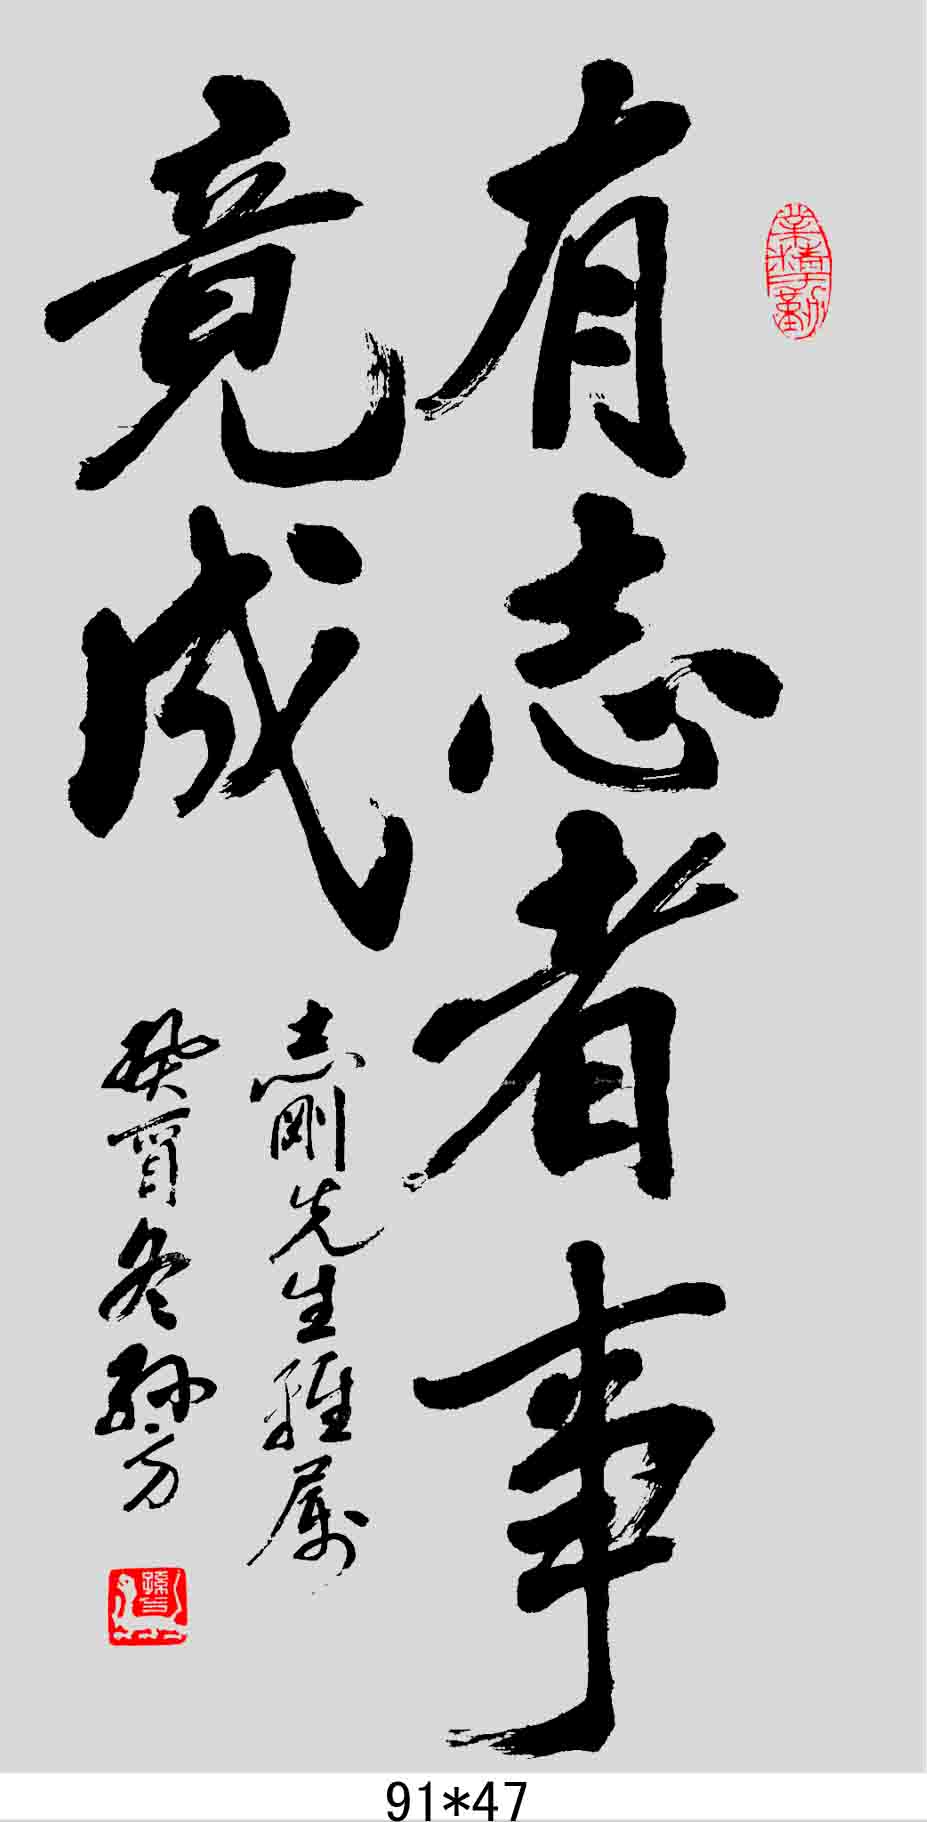 有志者事
竟成
志刚先生雅属
癸酉冬孙方
業精于勤
91*47